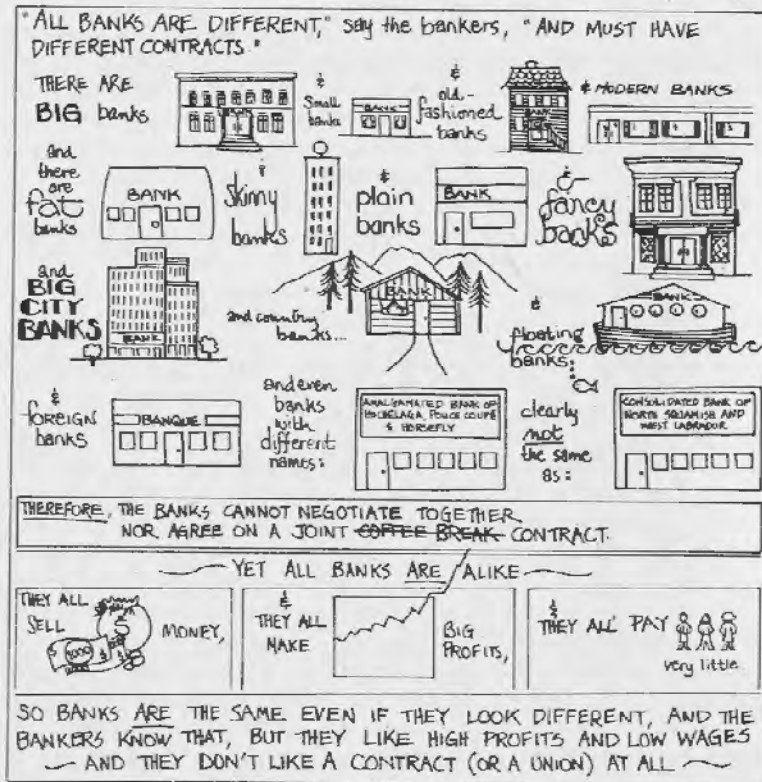 "ALL BANKS ARE DIFFERENT," say the bankers, "AND MUST HAVE
DIFFERENT CONTRACTS."
THERE ARE
BIG banks
BANK
&
small
banks
BANK
&
old-
fashioned
banks
BANK
& MODERN BANKS
and
there
are
fat
banks
BANK
&
skinny
banks
&
plain
banks
BANK
&
fancy
banks
and
BIG
CITY
BANKS
BANK
and country
banks...
BANK
&
floating
banks:
BANK
&
FOREIGN
banks
BANQUE
and even
banks
with
different
names:
AMALGAMATED BANK OF
HOCHELAGA, POUCE COUPÉ
& HORSEFLY
clearly
not
the same
as:
CONSOLIDATED BANK OF
NORTH SQUAMISH AND
WEST LABRADOR
THEREFORE, THE BANKS CANNOT NEGOTIATE TOGETHER
NOR AGREE ON A JOINT COFFEE BREAK CONTRACT.
YET ALL BANKS ARE ALIKE
THEY ALL
SELL
$
1000
$
MONEY,
&
THEY ALL
MAKE
BIG
PROFITS,
&
THEY ALL PAY
very little.
SO BANKS ARE THE SAME EVEN IF THEY LOOK DIFFERENT, AND THE
BANKERS KNOW THAT, BUT THEY LIKE HIGH PROFITS AND LOW WAGES
AND THEY DON'T LIKE A CONTRACT (OR A UNION) AT ALL